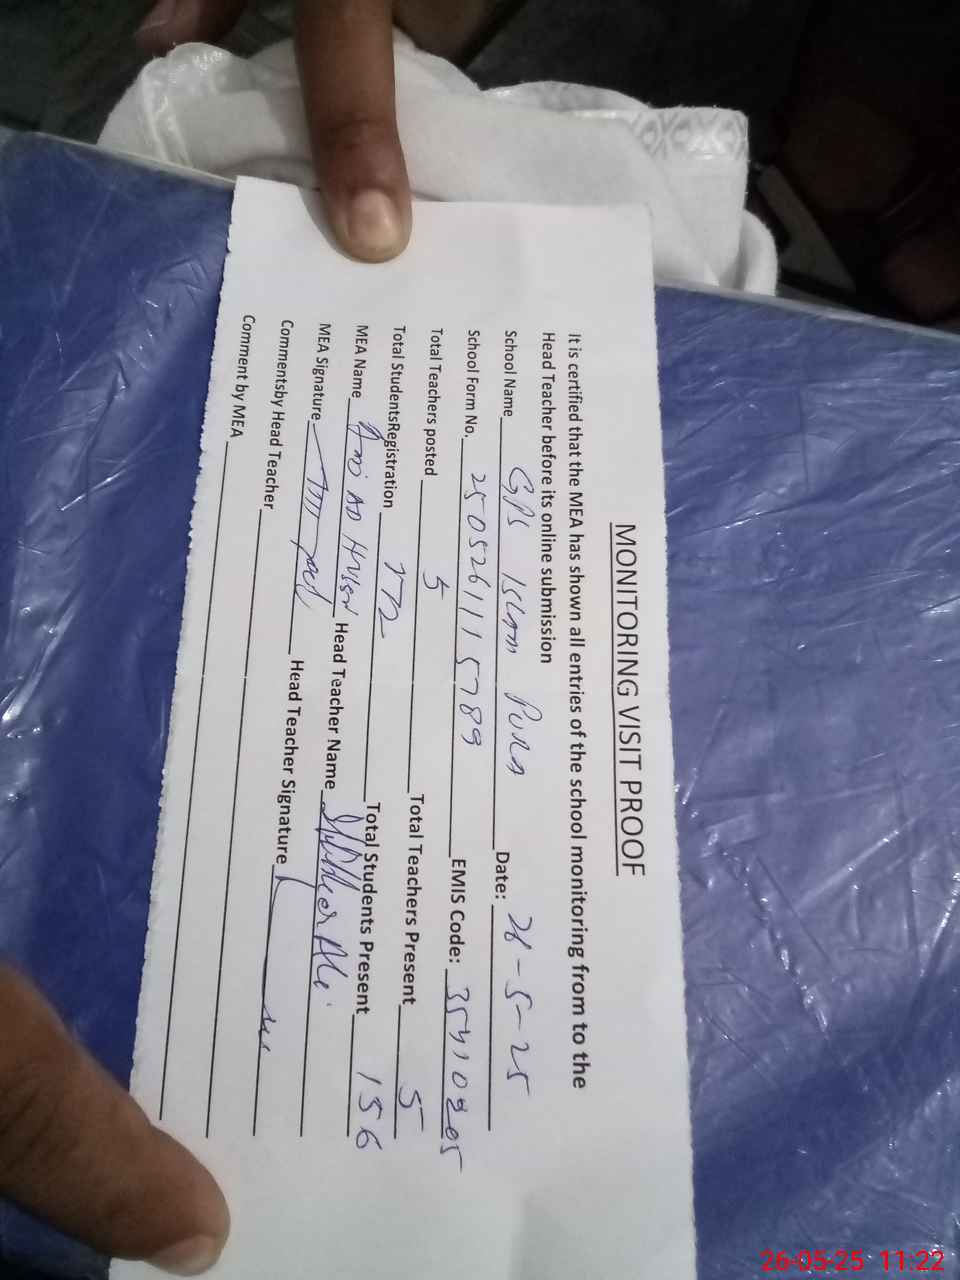 MONITORING VISIT PROOF
It is certified that the MEA has shown all entries of the school monitoring from to the
Head Teacher before its online submission
School Name GPS Islam Pura Date: 26-5-25
School Form No. 2505261115789 EMIS Code:
Total Teachers posted 5 Total Teachers Present 5
Total StudentsRegistration 172 Total Students Present 156
MEA Name Head Teacher Name Ali
MEA Signature Head Teacher Signature
Commentsby Head Teacher
Comment by MEA
26-05-25 11:22